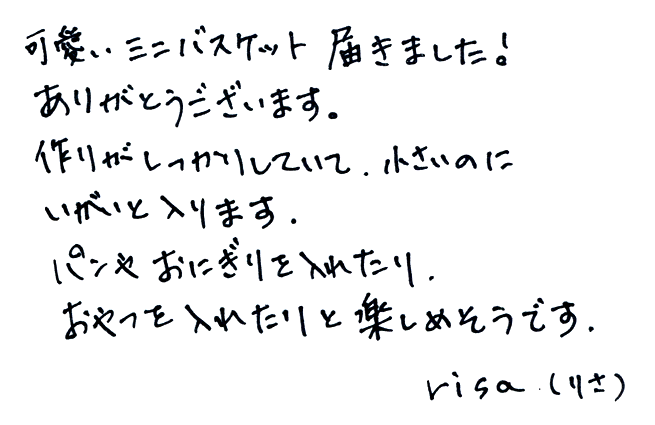 可愛いミニバスケット 届きました!
ありがとうございます。
作りがしっかりしていて、小さいのに
いがいと入ります.
パンや おにぎりを入れたり、
おやつを入れたりと楽しめそうです.
risa (りさ)